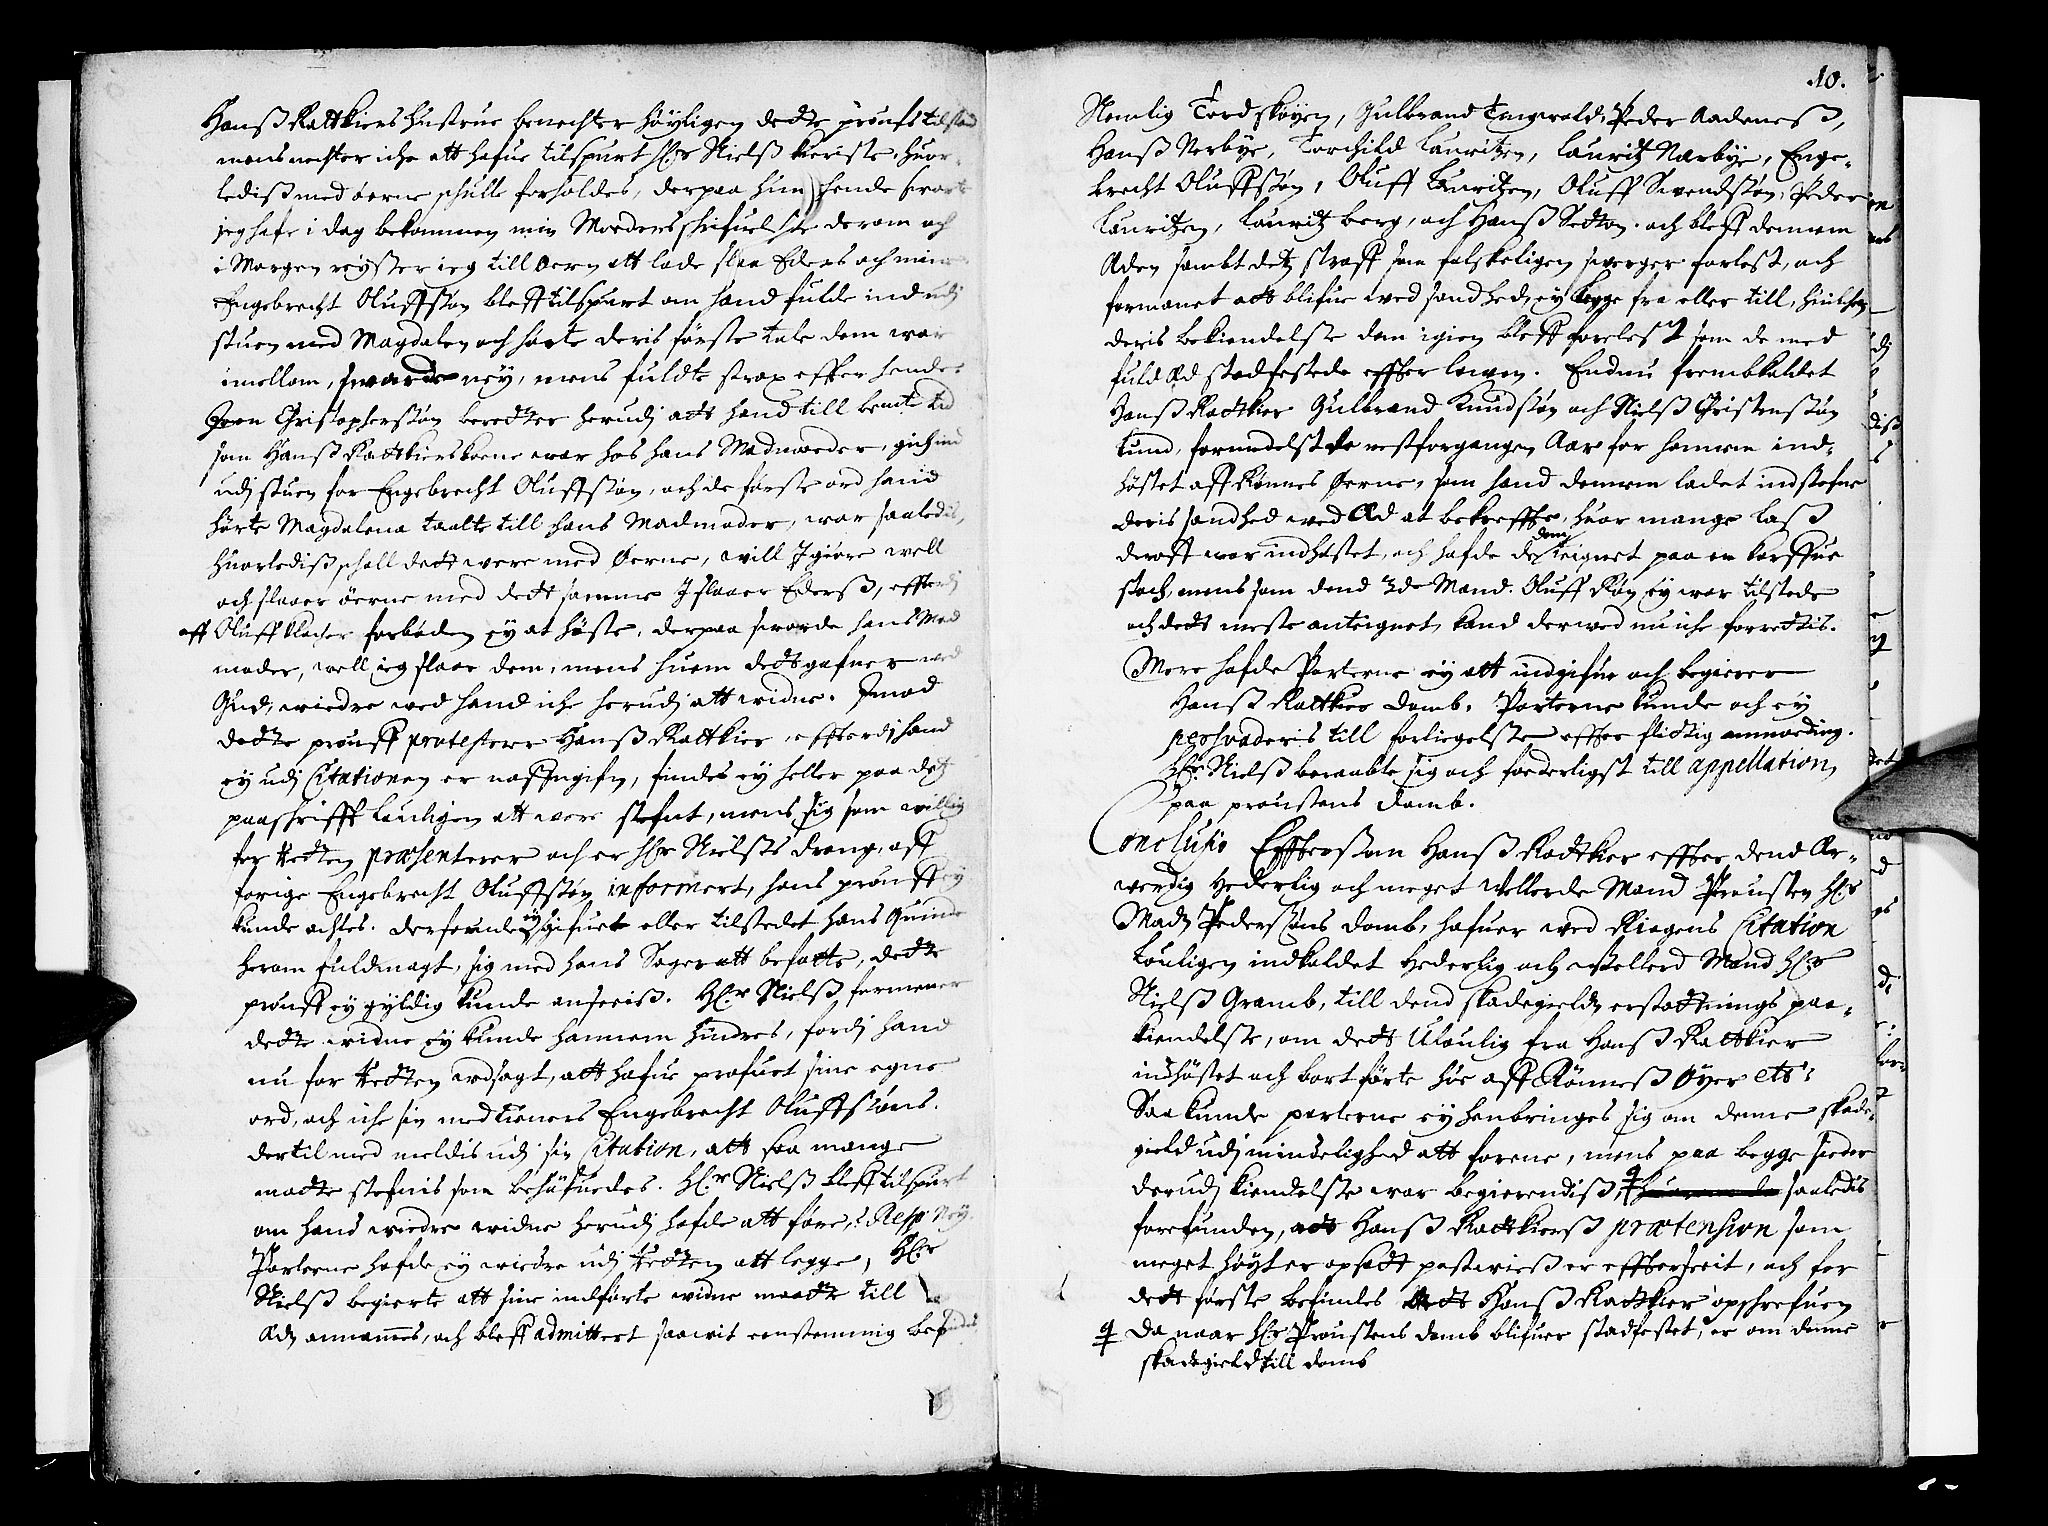 Hanß Rattkiers Hustrue benechter höyligen dette proufs tilstand
mens nechter iche att hafue tilspurt Hr Nielß kieriste, huor-
ledis med øerne schulle forholdes, derpaa hun hende svarte
jeg hafr i dag bekommen min Moders schrifuelse derom och
i Morgen reyser ieg till øern att lade slaa Eders och mine
Engebrecht Oluffsøn bleff tilspurt om hand fulde ind udj
stuen med Magdalen och hørte deris første tale dem war
imellom, svarede ney, mens fuldte strax effter hende
Joen Christophersøn beredter herudj att hand till bemte tid
som Hanß Rattkiers kone war hos hans Madmoder, gich ind
udj stuen for Engebrecht Oluffsøn, och de første ord hand
hörte Magdalena taalte till hans Madmoder, war saaledis,
Huorledis schall dett were med Øerne, will I giøre well
och slaaer öerne med dett samme I slaaer Ederß, efftersom
aff Oluff Klocher forboden ey at høste, derpaa svarde hans Mad
moder, well ieg slaar dem, mens huem dett gafner ved
Gud, wiedre wed hand iche herudj att widne. Imod
dette prouff protesterer Hanß Rattkier, effterdj hand
ey udj Citationen er nafngifn, findes ey heller paa detz
paaschrifft louligen att were stefnt, mens sig som willig
for Retten præsenterer och er Hr Nielses dreng, aff
forige Engebrecht Oluffsøn informert, hans prouff ey
kunde achtes. derforuden ey gifuet eller tilstedet hans Quinde
herom fuldmagt, sig med hans Sager att befatte, dette
prouff ey gyldig kunde anseeiß. Hr Nielß formener
dette widne ey kunde hannem hindres, fordj hand
nu for Retten udsagt, att hafue profuet sine egne
ord, och iche sin medtieners Engebrecht Oluffsøns.
dertil med meldis udj sin Citation, att saa mange
motte stefnis som behöfuedes. Hr Nielß bleff tilspurt
om hand wiedre widne herudj hafde att føre, Resp: Ney.
Parterne hafde ey wiedre udj Retten att legge, Hr
Nielß begierte att sine indførte widne maatte till
Æd annammes, och bleff admittert saawit eenstemmig befindis
10.
Nemlig Tord skøyen, Gulbrand Tangwald, Peder Aadeneß,
Hanß Nerbye, Torchild Lauritzen, Lauritz Nerbye, Enge-
brecht Oluffsøn, Oluff Lauritzen, Oluff Svendsøn, Peder
Lauritzen, Lauritz berg, och Hanß Setton. och bleff dennem
Æden sambt detz straff som falskeligen swerger forlest, och
formanet att blifue wed sandhed, ey legge fra eller till, huilchen
deris bekiendelse dem igien bleff forelest som de med
fuld Æd stadfestede effter lowen. Endnu frembkaldet
Hanß Rattkier Gulbrand Knudsøn och Nielß Christensøn
Lund, formedelst de nestforgangen Aar for hannem ind-
höstet aff Rønnes Øerne, som hand dennem ladet indstefne
deris sandhed wed Æd at bekreffte, huor mange laß
deraff war indhøstet, och hafde de dem teignet paa en karffue
stoch, mens som dend 3de Mand. Oluff Røn ey war tilstede
och dett meste anteignet, kand derwed nu iche forrettis.
Mere hafde Parterne ey att indgifue och begierer
Hanß Rattkier Domb. Parterne kunde och ey
persvaderis till forliegelse effter flittig anmoding.
Hr Nielß beraabte sig och foederligst till appellation,
paa proustens domb.
Conclusio Efftersom Hanß Rattkier effter dend Ær-
werdig Hederlig och meget Wellerde Mand Prousten Hr
Madz Pedersøns domb, hafuer wed Riegens Citation
Louligen indkaldet Hederlig och Wellerd Mand Hr
Nielß Gramb, till dend skadegield erstattnings paa-
kiendelse, om dett Uloulig fra Hanß Rattkier
indhöstet och bort førte høe aff Rönneß Øyer etc:
Saa kunde parterne ey henbringes sig om denne skade-
gield udj mindelighed att forene, mens paa begge sieder
derudj kiendelse war begierendiß, ꝗ saaledis
forefunden, att Hanß Rattkierß prætension som
meget høyt er opsatt er efftersseit, och for
dett første befindes dett Hanß Rattkier opschrefuen
ꝗ da naar Hr Proustens domb blifuer stadfestet, er om denne
skadegield till domb